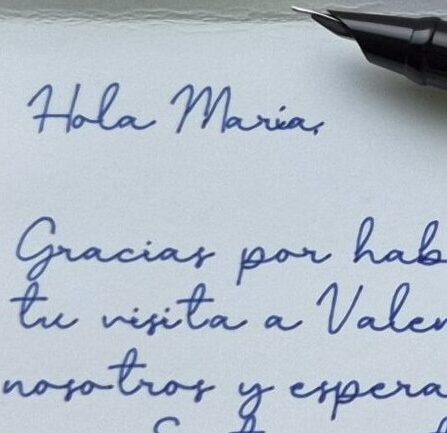 Hola María,
Gracias por hab
tu visita a Valen
nosotros y espera